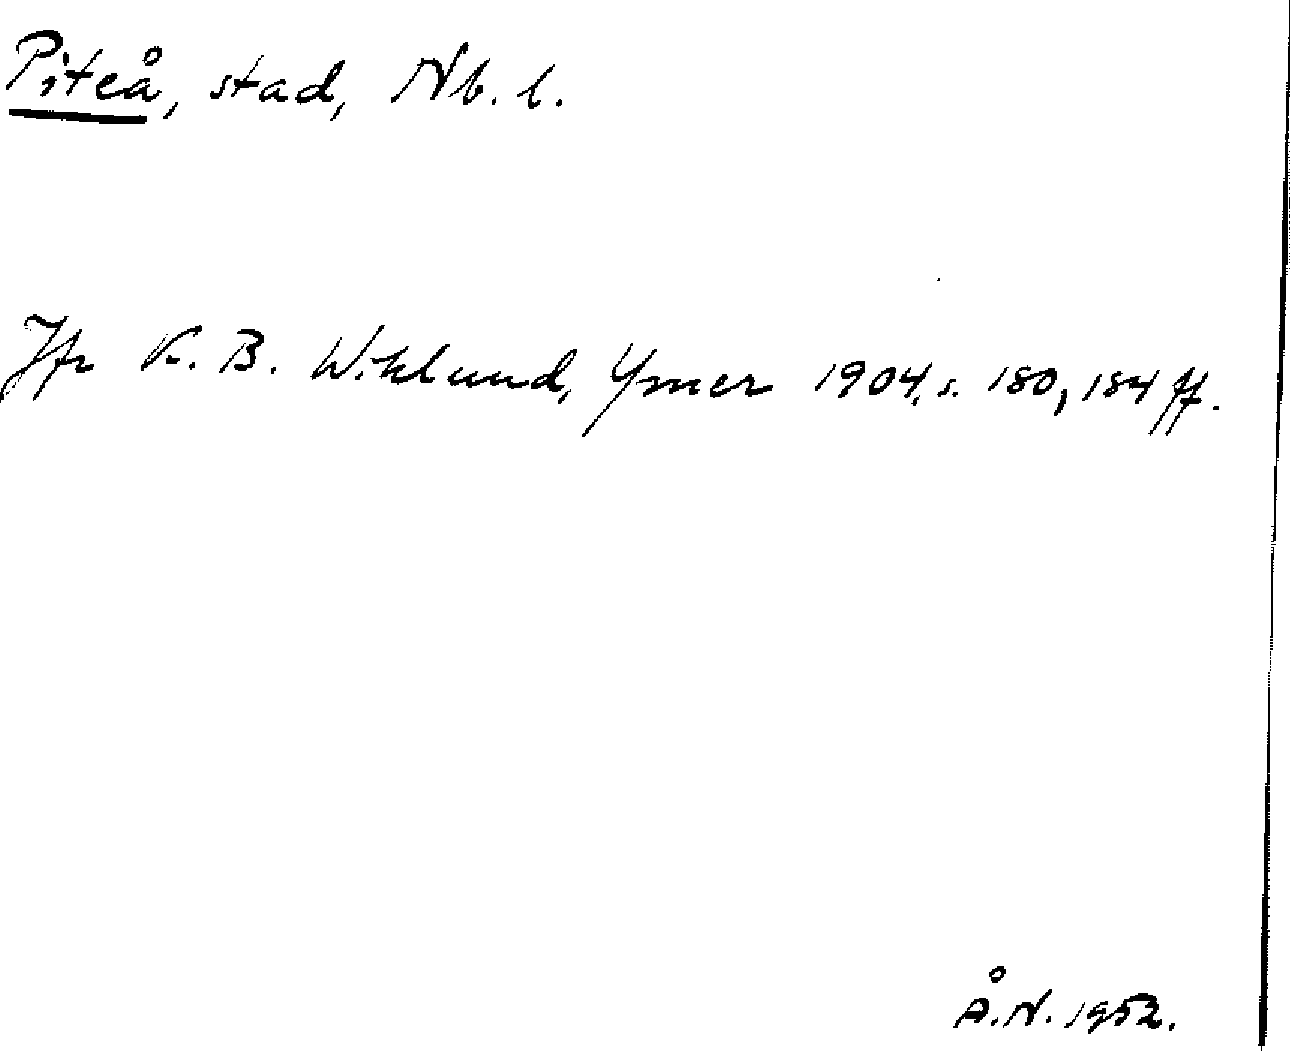 Piteå, stad, Nb. l.
Jfr K. B. Wiklund, Ymer 1904, s. 180, 184 ff.
Å.N. 1952.